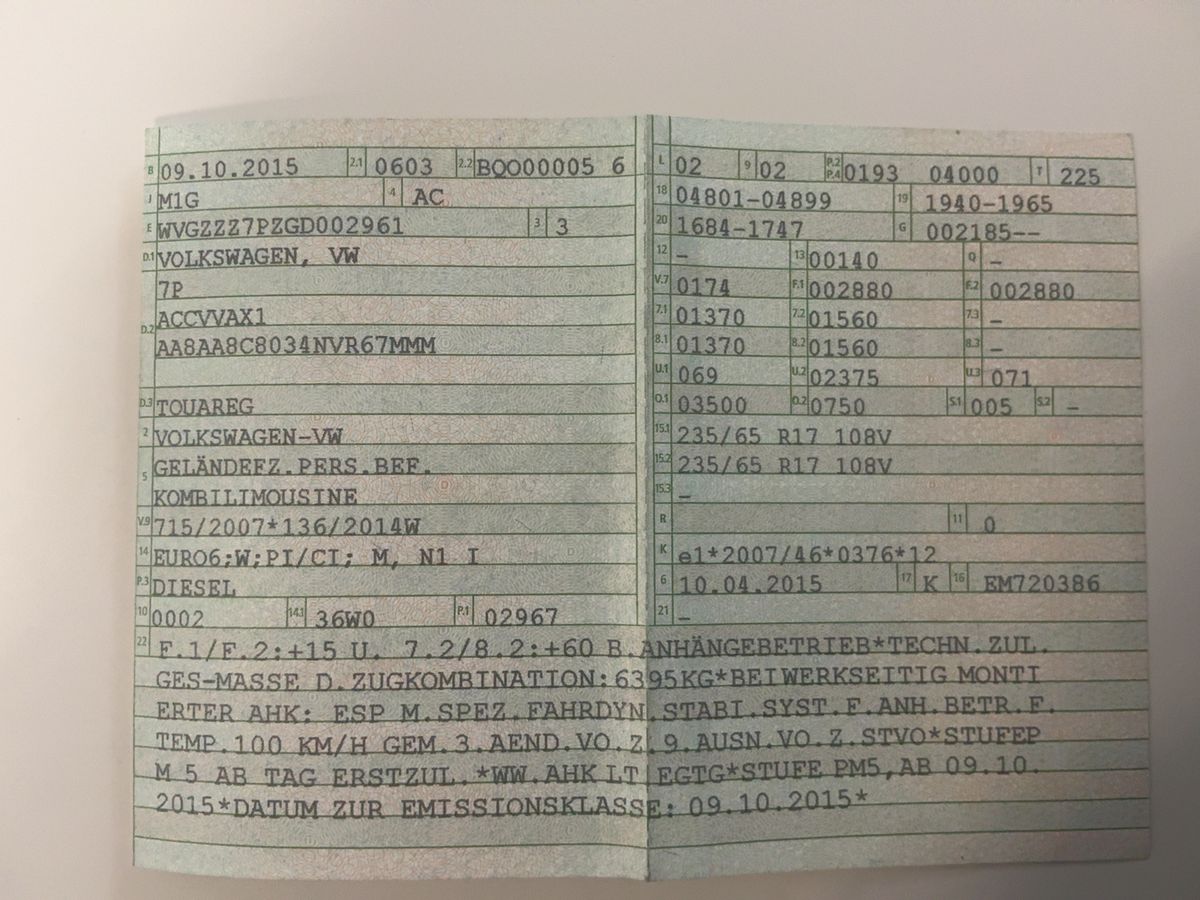 B 09.10.2015 2.1 0603 2.2 BQO00005 6
J M1G 4 AC
E WVGZZZ7PZGD002961 3 3
D.1 VOLKSWAGEN, VW
7P
D.2 ACCVVAX1
AA8AA8C8034NVR67MMM
D.3 TOUAREG
2 VOLKSWAGEN-VW
5 GELÄNDEFZ.PERS.BEF.
KOMBILIMOUSINE
V.9 715/2007*136/2014W
14 EURO6;W;PI/CI; M, N1 I
P.3 DIESEL
10 0002 14.1 36W0 P.1 02967
L 02 9 02 P.2 P.4 0193 04000 T 225
18 04801-04899 19 1940-1965
20 1684-1747 G 002185--
12 - 13 00140 Q -
V.7 0174 F.1 002880 F.2 002880
7.1 01370 7.2 01560 7.3 -
8.1 01370 8.2 01560 8.3 -
U.1 069 U.2 02375 U.3 071
O.1 03500 O.2 0750 S.1 005 S.2 -
15.1 235/65 R17 108V
15.2 235/65 R17 108V
15.3 -
R 11 0
K e1*2007/46*0376*12
6 10.04.2015 17 K 16 EM720386
21 -
22 F.1/F.2:+15 U. 7.2/8.2:+60 B.ANHÄNGEBETRIEB*TECHN.ZUL.
GES-MASSE D.ZUGKOMBINATION:6395KG*BEIWERKSEITIG MONTI
ERTER AHK: ESP M.SPEZ.FAHRDYN.STABI.SYST.F.ANH.BETR.F.
TEMP.100 KM/H GEM.3.AEND.VO.Z.9.AUSN.VO.Z.STVO*STUFEP
M 5 AB TAG ERSTZUL.*WW.AHK LT EGTG*STUFE PM5,AB 09.10.
2015*DATUM ZUR EMISSIONSKLASSE: 09.10.2015*